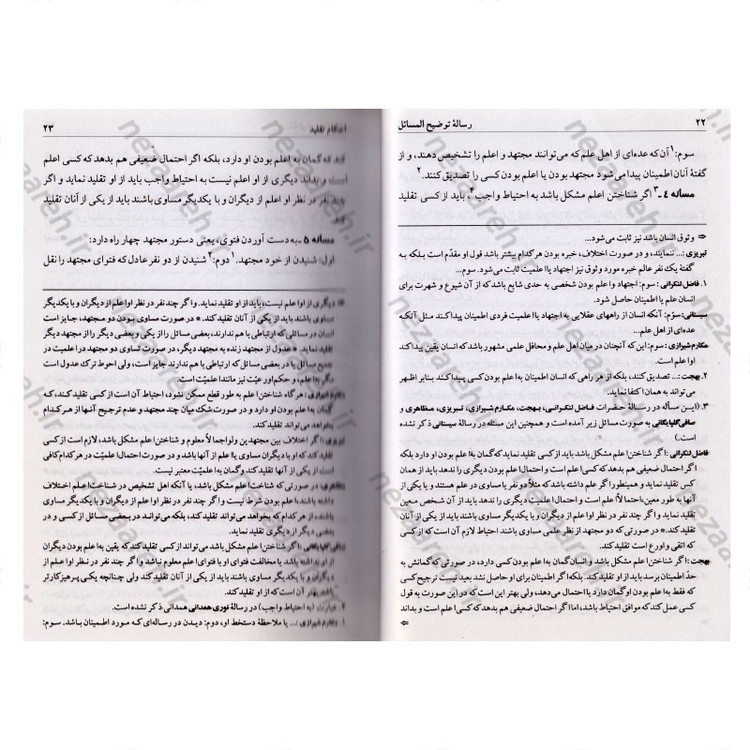 ۲۲
رسالهٔ توضیح المسائل
سوم:۱ آن که عده‌ای از اهل علم که می‌توانند مجتهد و اعلم را تشخیص دهند، و از
گفتهٔ آنان اطمینان پیدا می‌شود مجتهد بودن یا اعلم بودن کسی را تصدیق کنند.۲
مسأله ۴ ـ۳ اگر شناختن اعلم مشکل باشد به احتیاط واجب۴ باید از کسی تقلید
⇦ وثوق انسان باشد نیز ثابت می‌شود...
تبریزی: ... ننمایند، و در صورت اختلاف، خبره بودن هرکدام بیشتر باشد قول او مقدّم است بلکه به
گفتهٔ یک نفر عالم خبره مورد وثوق نیز اجتهاد یا اعلمیت ثابت می‌شود. سوم...
۱. فاضل لنکرانی: سوم: اجتهاد و اعلم بودن شخصی به حدی شایع باشد که از آن شیوع و شهرت برای
انسان علم یا اطمینان حاصل شود.
سیستانی: سوم: آنکه انسان از راههای عقلایی به اجتهاد یا اعلمیت فردی اطمینان پیدا کند مثل آنکه
عده‌ای از اهل علم...
مکارم شیرازی: سوم: این که آنچنان در میان اهل علم و محافل علمی مشهور باشد که انسان یقین پیدا کند
او اعلم است.
۲. بهجت: ... تصدیق کنند، بلکه از هر راهی که انسان اطمینان به اعلم بودن کسی پیدا کند بنابر اظهر
می‌تواند به همان اکتفا نماید.
۳. (این مسأله در رسالهٔ حضرات فاضل لنکرانی، بهجت، مکارم شیرازی، تبریزی، مظاهری و
صافی گلپایگانی به صورت مسائل زیر آمده است و همچنین این مسئله در رسالهٔ سیستانی ذکر نشده
است.)
فاضل لنکرانی: اگر شناختن اعلم مشکل باشد باید از کسی تقلید نماید که گمان به اعلم بودن او دارد بلکه
اگر احتمال ضعیفی هم بدهد که کسی اعلم است و احتمال اعلم بودن دیگری را ندهد باید از همان
کس تقلید نماید و همینطور اگر علم داشته باشد که مثلاً دو نفر یا مساوی در علم هستند و یا یکی از
آنها به طور معین احتمالاً اعلم است و احتمال اعلم بودن دیگری را ندهد باید از آن شخص معین
تقلید کند، و اگر چند نفر در نظر او اعلم از دیگران و با یکدیگر مساوی باشند باید از یکی از آنان
تقلید کند. * در صورتی که دو مجتهد از نظر علمی مساوی باشند احتیاط لازم آن است که از کسی
که اتقی و اورع است تقلید کند.
بهجت: اگر شناختن اعلم مشکل باشد و انسان گمان به اعلم بودن کسی دارد، در صورتی که گمانش به
حدّ اطمینان برسد باید از او تقلید کند. بلکه اگر اطمینان برای او حاصل نشد بعید نیست ترجیح کسی
که فقط به اعلم بودن او گمان دارد یا احتمال می‌دهد، ولی بهتر این است که در این صورت به قول
کسی عمل کند که موافق احتیاط باشد، اما اگر احتمال ضعیفی هم بدهد که کسی اعلم است و بداند
⇦
احکام تقلید
۲۳
کند که گمان به اعلم بودن او دارد، بلکه اگر احتمال ضعیفی هم بدهد که کسی اعلم
است و بداند دیگری از او اعلم نیست به احتیاط واجب باید از او تقلید نماید و اگر
چند نفر در نظر او اعلم از دیگران و با یکدیگر مساوی باشند باید از یکی از آنان تقلید
کند.
مسأله ۵ ـ به دست آوردن فتوی، یعنی دستور مجتهد چهار راه دارد:
اول: شنیدن از خود مجتهد.۱ دوم:۲ شنیدن از دو نفر عادل که فتوای مجتهد را نقل
دیگری از او اعلم نیست، باید از او تقلید نماید. و اگر چند نفر در نظر او اعلم از دیگران و با یکدیگر
مساوی باشند باید از یکی از آنان تقلید کند. * در صورت مساوی بودن دو مجتهد، جایز است
انسان در مسائلی که ارتباطی با هم ندارند، بعضی مسائل را از یکی و بعضی دیگر را از مجتهد دیگر
تقلید نماید. * عدول از مجتهد زنده به مجتهد دیگر، در صورت تساوی دو مجتهد در اعلمیت در
جمیع مسائل یا در بعضی مسائل که ارتباطی با هم ندارند جایز است، ولی احوط ترک عدول است
مگر به اعلم، و حکم اورعیّت نیز مانند اعلمیّت است.
مکارم شیرازی: هرگاه شناختن اعلم به طور قطع ممکن نشود، احتیاط آن است از کسی تقلید کند، که
گمان به اعلم بودن او دارد و در صورت شک میان چند مجتهد و عدم ترجیح آنها از هر کدام
بخواهد می‌تواند تقلید کند.
تبریزی: اگر اختلاف بین مجتهدین ولو اجمالاً معلوم و شناختن اعلم مشکل باشد، لازم است از کسی
تقلید کند که او با دیگران مساوی یا اعلم باشد و در صورت احتمال اعلمیت در هرکدام کافی
است از یکی از آنها تقلید کند، وگمان به اعلمیّت معتبر نیست.
مظاهری: در صورتی که شناخت اعلم مشکل باشد، یا آنکه اهل تشخیص در شناخت اعلم اختلاف
داشته باشند، اعلم بودن شرط نیست و اگر چند نفر در نظر او اعلم از دیگران و با یکدیگر مساوی
باشند، از هرکدام که بخواهد می‌تواند تقلید کند، بلکه می‌تواند در بعضی مسائل از کسی و در
بعضی مسائل دیگر از دیگری تقلید نماید.
صافی گلپایگانی: اگر شناختن اعلم مشکل باشد می‌تواند از کسی تقلید کند که یقین به اعلم بودن دیگران
از او نداشته باشد یا مخالفت فتوای او با فتوای اعلم معلوم نباشد و اگر چند نفر در نظر او اعلم از
دیگران و با یکدیگر مساوی باشند باید از یکی از آنان تقلید کند ولی چنانچه یکی پرهیزکارتر
باشد، احتیاط آن است که از او تقلید کند.
۴. عبارت (به احتیاط واجب) در رسالهٔ نوری همدانی ذکر نشده است.
۱. مکارم شیرازی: ... یا ملاحظهٔ دستخط او، دوم: دیدن در رساله‌ای که مورد اطمینان باشد. سوم:
nezaareh.ir